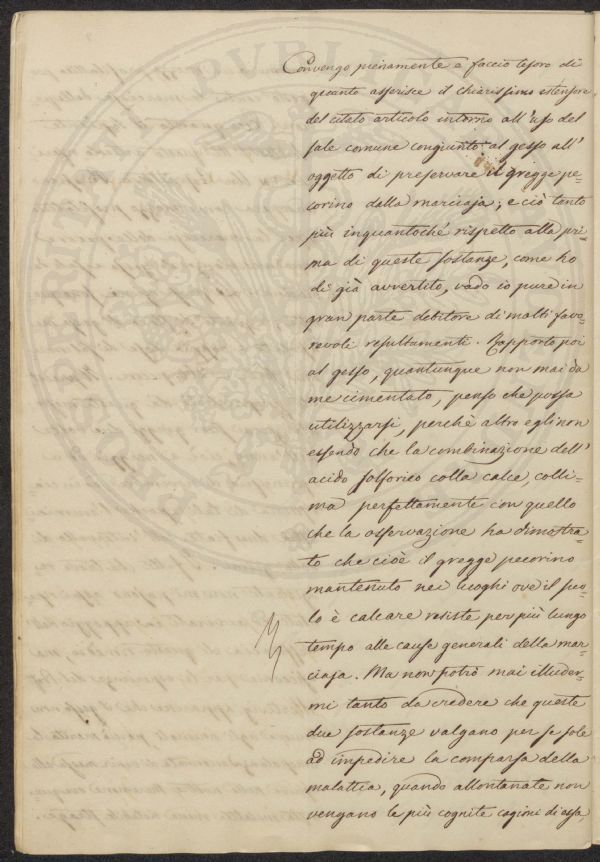 Convengo pienamente e faccio tesoro di
quanto asserisce il chiarissimo estensore
del citato articolo intorno all'uso del
sale comune congiunto al gesso all'
oggetto di preservare il gregge pe=
corino dalla marciaja; e ciò tanto
più inquantoché rispetto alla pri=
ma di queste sostanze, come ho
di già avvertito, vado io pure in
gran parte debitore di molti favo=
revoli resultamenti. Rapporto poi
al gesso, quantunque non mai da
me cimentato, penso che possa
utilizzarsi, perché altro egli non
essendo che la combinazione dell'
acido solforico colla calce, colli=
ma perfettamente con quello
che la osservazione ha dimostra=
to che cioè il gregge pecorino
mantenuto nei luoghi ove il suo=
lo è calcare resiste per più lungo
tempo alle cause generali della mar=
ciaja. Ma non potrò mai illuder=
mi tanto da credere che queste
due sostanze valgano per se sole
ad impedire la comparsa della
malattia, quando allontanate non
vengano le più cognite cagioni di essa,